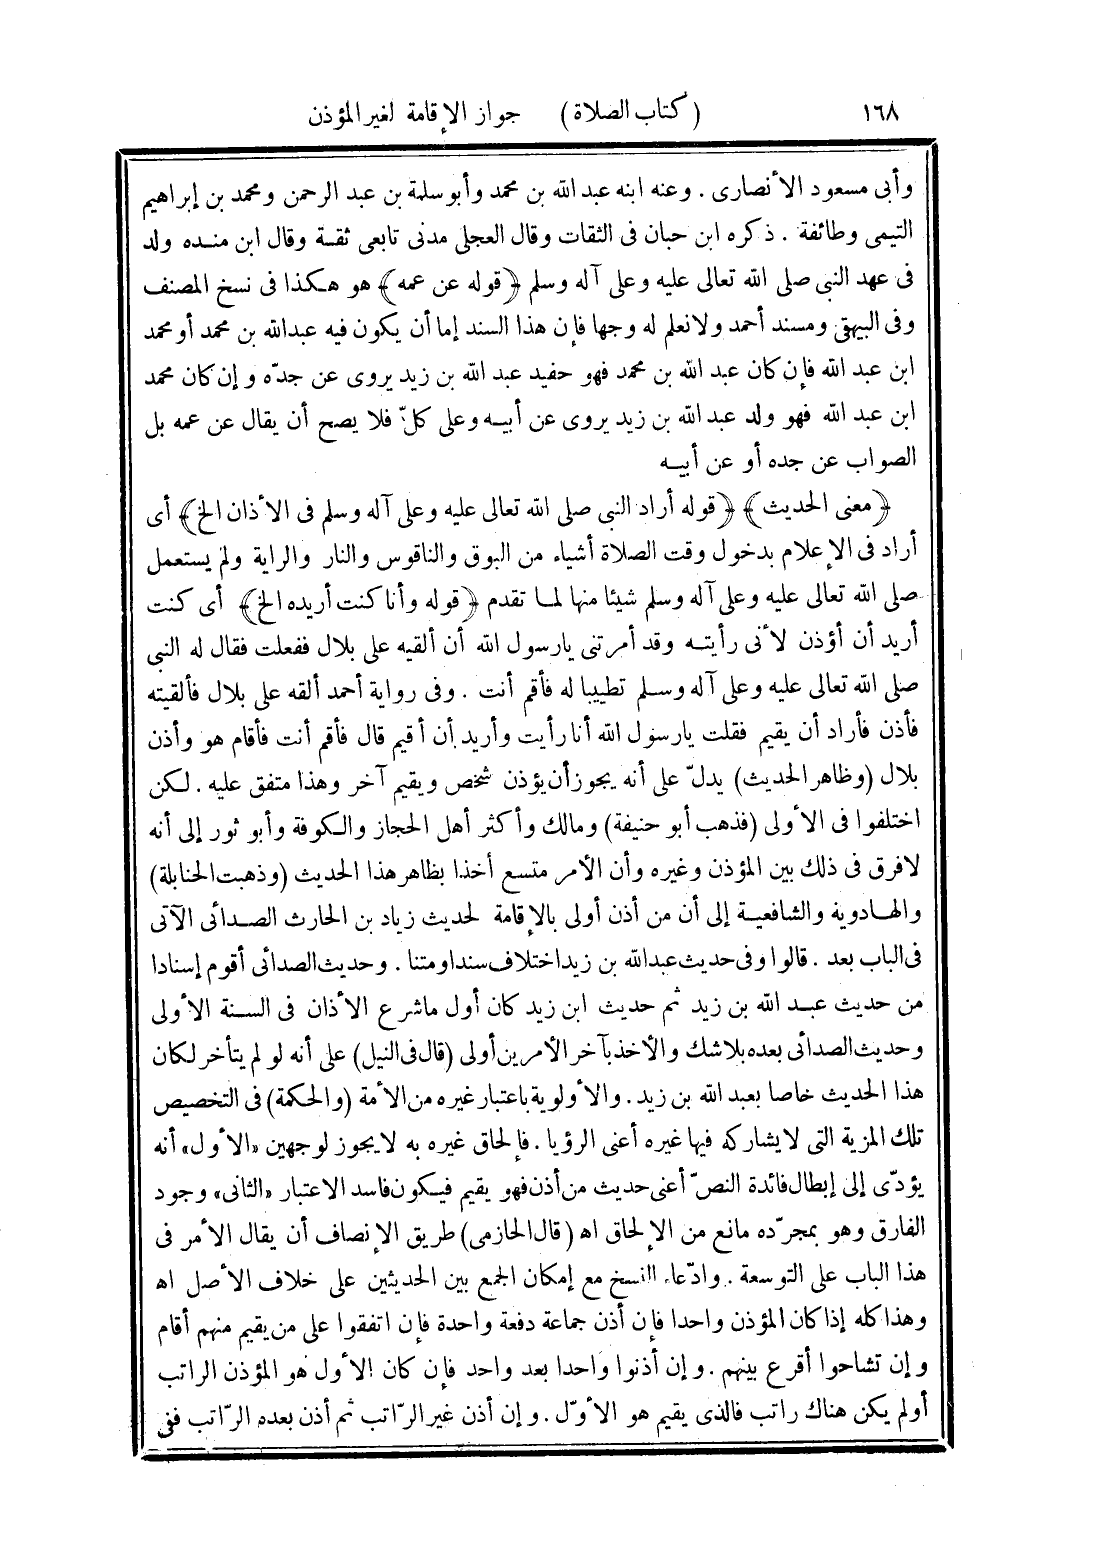 ١٦٨ (كتاب الصلاة) جواز الإقامة لغير المؤذن
وأبى مسعود الأنصارى . وعنه ابنه عبد الله بن محمد وأبو سلمة بن عبد الرحمن ومحمد بن إبراهيم
التيمى وطائفة . ذكره ابن حبان فى الثقات وقال العجلى مدنى تابعى ثقة وقال ابن منده ولد
فى عهد النبى صلى الله تعالى عليه وعلى آله وسلم ﴿قوله عن عمه﴾ هو هكذا فى نسخ المصنف
وفى البيهقى ومسند أحمد ولا نعلم له وجها فإن هذا السند إما أن يكون فيه عبدالله بن محمد أو محمد
ابن عبد الله فإن كان عبد الله بن محمد فهو حفيد عبد الله بن زيد يروى عن جدّه وإن كان محمد
ابن عبد الله فهو ولد عبد الله بن زيد يروى عن أبيه وعلى كلّ فلا يصح أن يقال عن عمه بل
الصواب عن جده أو عن أبيه
﴿معنى الحديث﴾ ﴿قوله أراد النبى صلى الله تعالى عليه وعلى آله وسلم فى الأذان الخ﴾ أى
أراد فى الإعلام بدخول وقت الصلاة أشياء من البوق والناقوس والنار والراية ولم يستعمل
صلى الله تعالى عليه وعلى آله وسلم شيئا منها لما تقدم ﴿قوله وأنا كنت أريده الخ﴾ أى كنت
أريد أن أؤذن لأنى رأيته وقد أمرتنى يارسول الله أن ألقيه على بلال ففعلت فقال له النبى
صلى الله تعالى عليه وعلى آله وسلم تطييبا له فأقم أنت . وفى رواية أحمد ألقه على بلال فألقيته
فأذن فأراد أن يقيم فقلت يارسول الله أنا رأيت وأريد أن أقيم قال فأقم أنت فأقام هو وأذن
بلال (وظاهر الحديث) يدلّ على أنه يجوز أن يؤذن شخص ويقيم آخر وهذا متفق عليه . لكن
اختلفوا فى الأولى (فذهب أبو حنيفة) ومالك وأكثر أهل الحجاز والكوفة وأبو ثور إلى أنه
لافرق فى ذلك بين المؤذن وغيره وأن الأمر متسع أخذا بظاهر هذا الحديث (وذهبت الحنابلة)
والهادوية والشافعية إلى أن من أذن أولى بالإقامة لحديث زياد بن الحارث الصدائى الآتى
فى الباب بعد . قالوا وفى حديث عبدالله بن زيد اختلاف سندا ومتنا . وحديث الصدائى أقوم إسنادا
من حديث عبد الله بن زيد ثم حديث ابن زيد كان أول ماشرع الأذان فى السنة الأولى
وحديث الصدائى بعده بلاشك والأخذ بآخر الأمرين أولى (قال فى النيل) على أنه لو لم يتأخر لكان
هذا الحديث خاصا بعبد الله بن زيد . والأولوية باعتبار غيره من الأمة (والحكمة) فى التخصيص
تلك المزية التى لا يشاركه فيها غيره أعنى الرؤيا . فإلحاق غيره به لايجوز لوجهين «الأول» أنه
يؤدّى إلى إبطال فائدة النصّ أعنى حديث من أذن فهو يقيم فيكون فاسد الاعتبار «الثانى» وجود
الفارق وهو بمجرّده مانع من الإلحاق اه (قال الحازمى) طريق الإنصاف أن يقال الأمر فى
هذا الباب على التوسعة . وادّعاء النسخ مع إمكان الجمع بين الحديثين على خلاف الأصل اه
وهذا كله إذا كان المؤذن واحدا فإن أذن جماعة دفعة واحدة فإن اتفقوا على من يقيم منهم أقام
وإن تشاحوا أقرع بينهم . وإن أذنوا واحدا بعد واحد فإن كان الأول هو المؤذن الراتب
أولم يكن هناك راتب فالذى يقيم هو الأوّل . وإن أذن غير الرّاتب ثم أذن بعده الرّاتب ففى